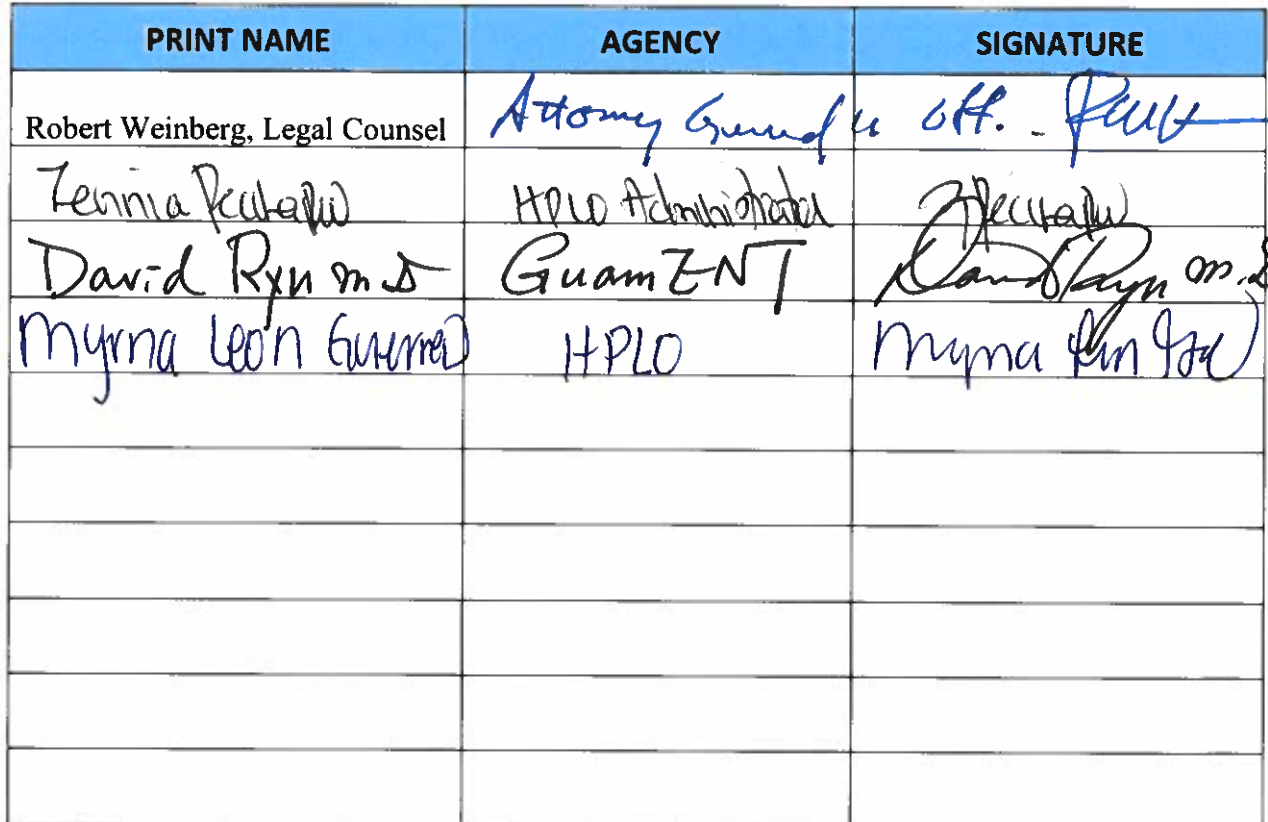 PRINT NAME AGENCY SIGNATURE
Robert Weinberg, Legal Counsel Attorney General's Off.
Zennia Pecina HPLO Administrator
David Ryn M.D GuamENT David Ryn M.D
Myrna Leon Guerrero HPLO Myrna